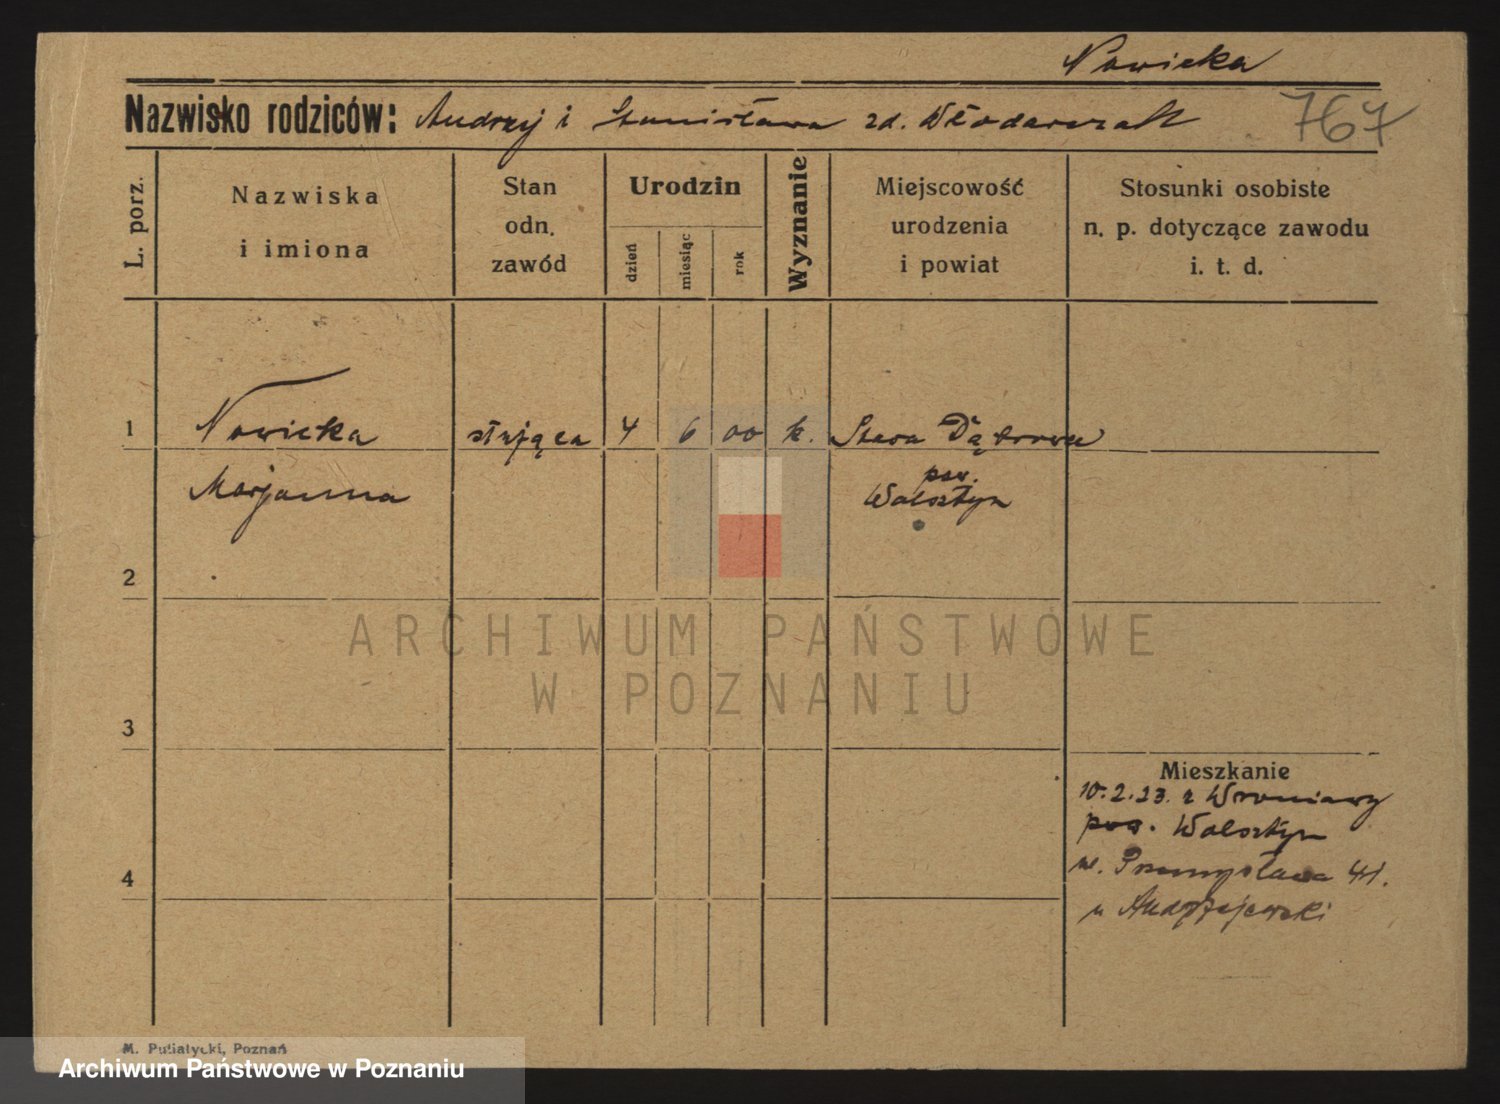 Nowicka
Nazwisko rodziców: Andrzej i Stanisława zd. Włodarczak 767
L. porz.
Nazwiska
i imiona
Stan
odn.
zawód
Urodzin
dzień
miesiąc
rok
Wyznanie
Miejscowość
urodzenia
i powiat
Stosunki osobiste
n. p. dotyczące zawodu
i. t. d.
1 Nowicka służąca 4 6 00 k. Stara Dąbrowa
Marjanna
pow.
Wolsztyn
2
ARCHIWUM PAŃSTWOWE
W POZNANIU
3
Mieszkanie
10.2.23. z Wroniawy
pow. Wolsztyn
4
ul. Przemysława 41.
u Andrzejewski
M. Putiatycki, Poznań
Archiwum Państwowe w Poznaniu